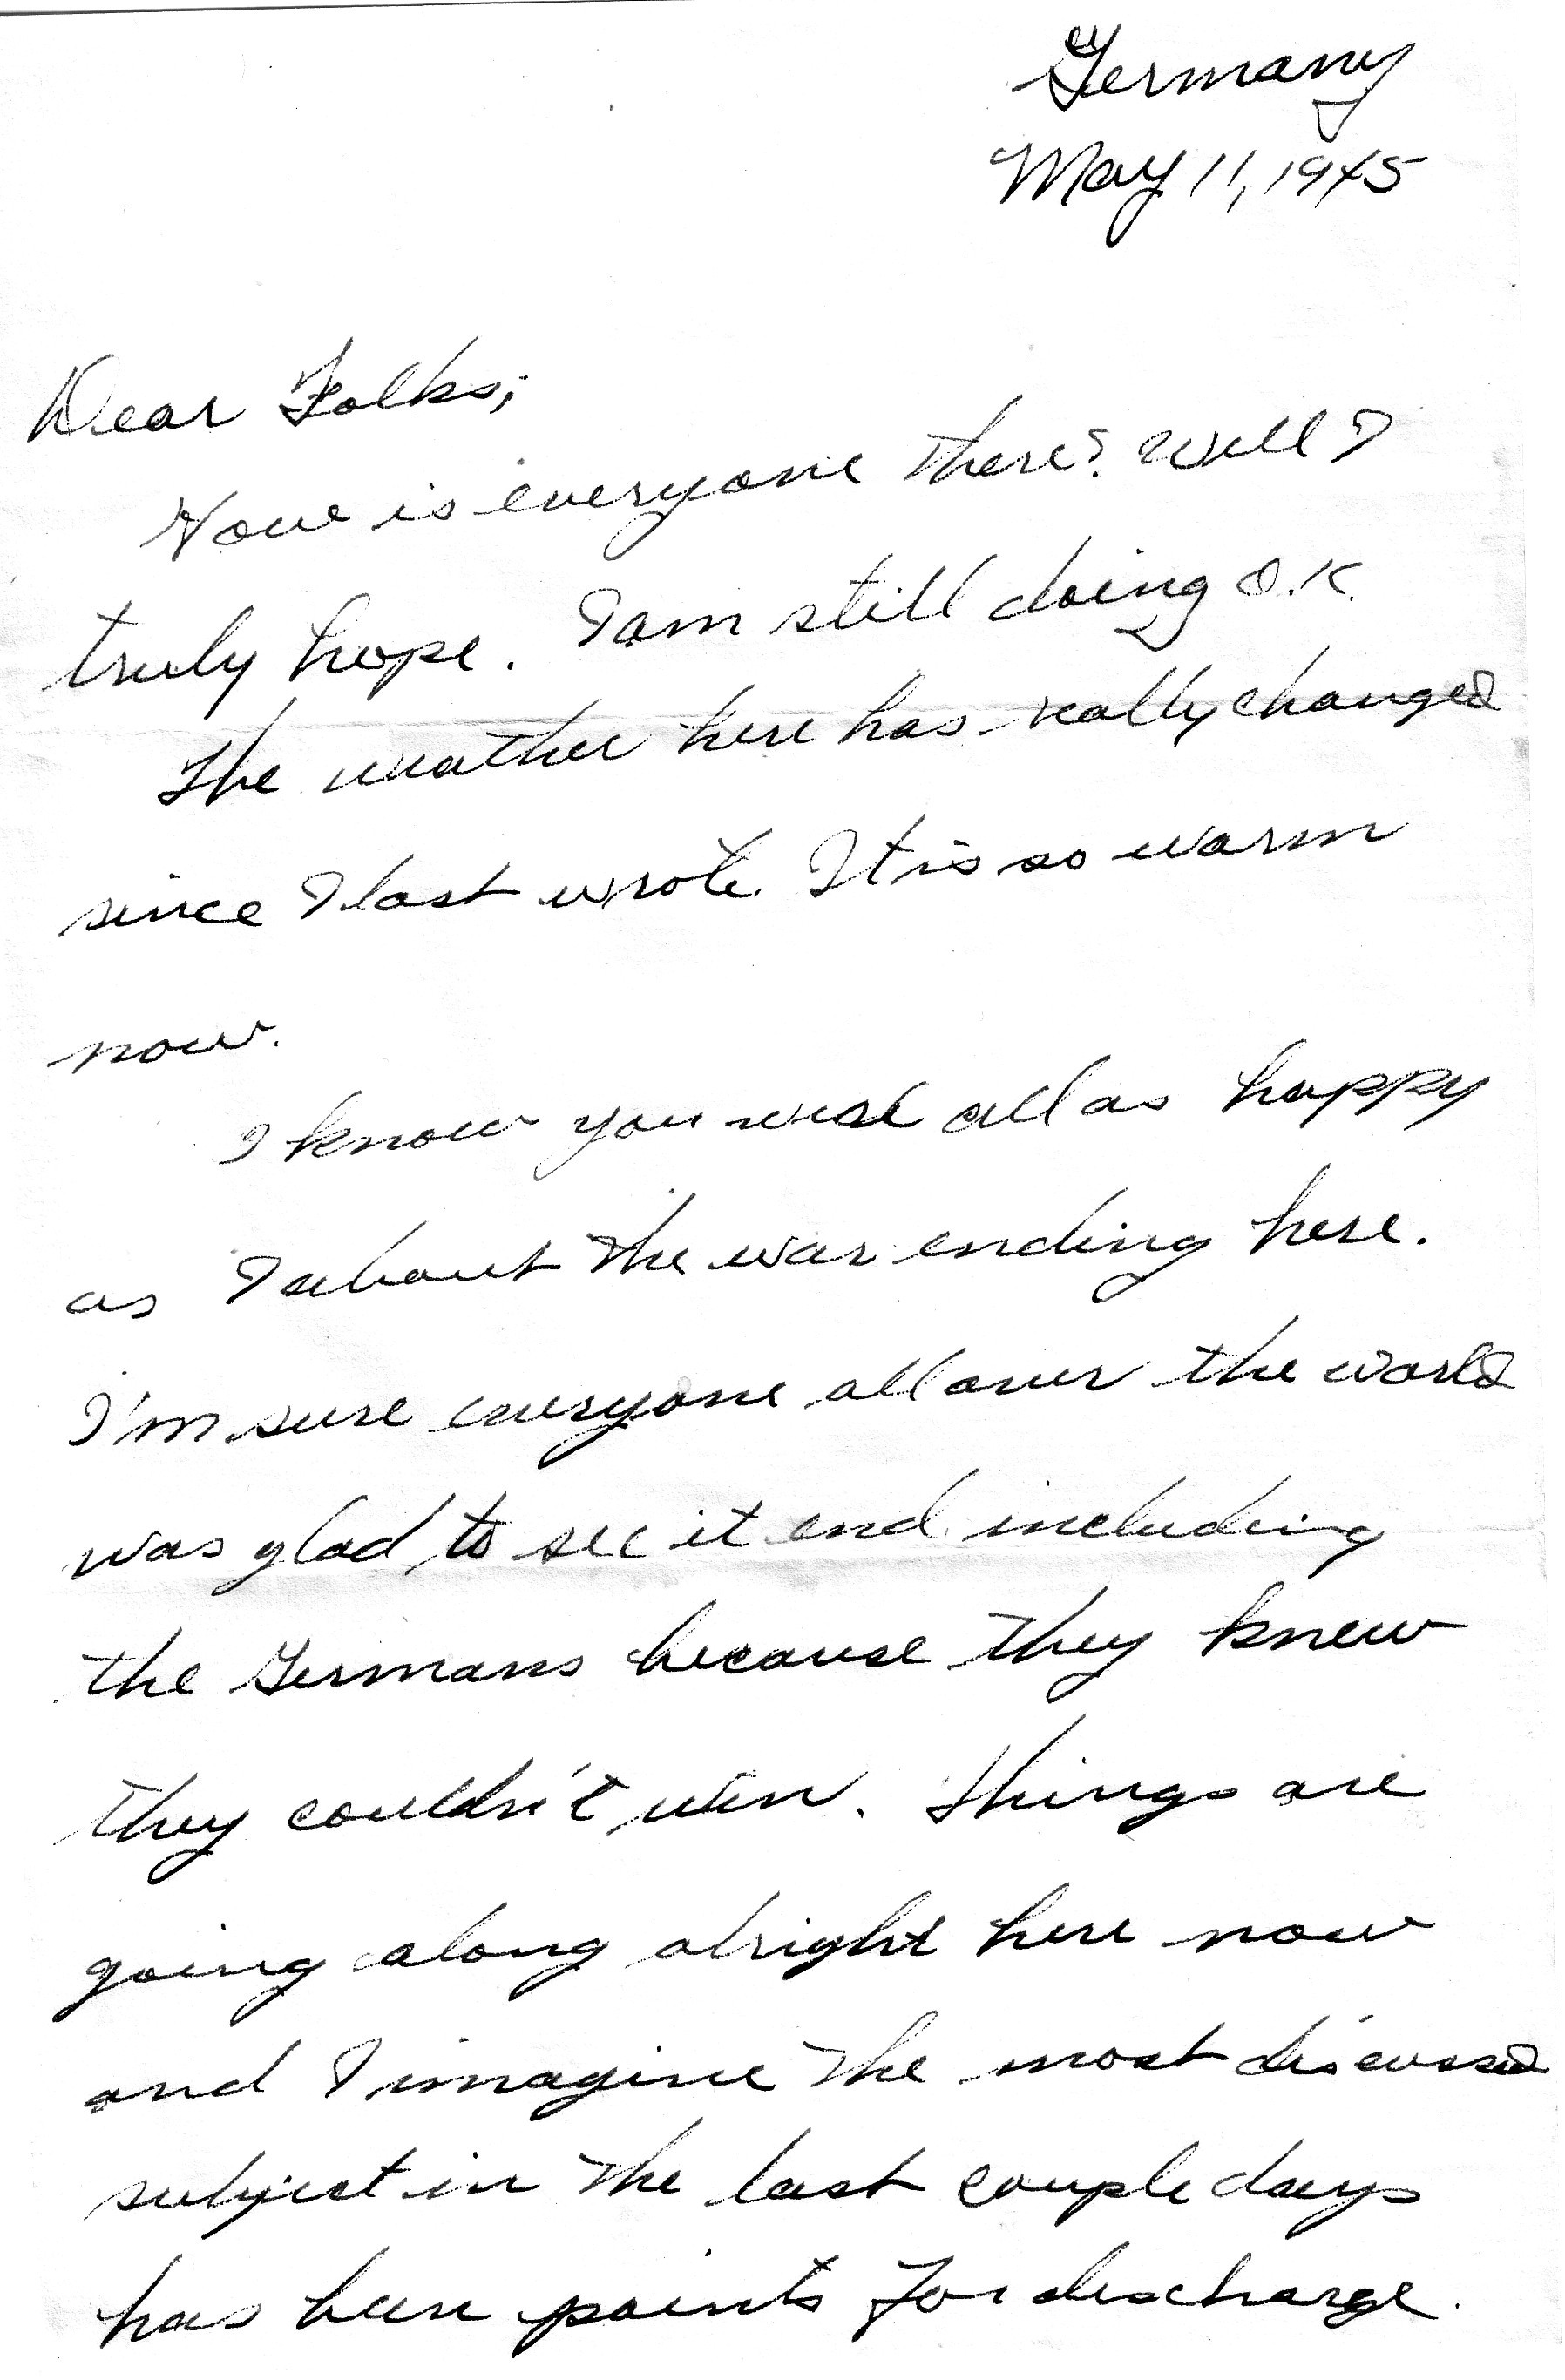 Germany
May 11, 1945
Dear Folks;
How is everyone there? Well I
truly hope. I am still doing O.K.
The weather here has really changed
since I last wrote. It is so warm
now.
I know you were all as happy
as I about the war ending here.
I'm sure everyone all over the world
was glad to see it end including
the Germans because they knew
they couldn't win. Things are
going along alright here now
and I imagine the most discussed
subject in the last couple days
has been points for discharge.